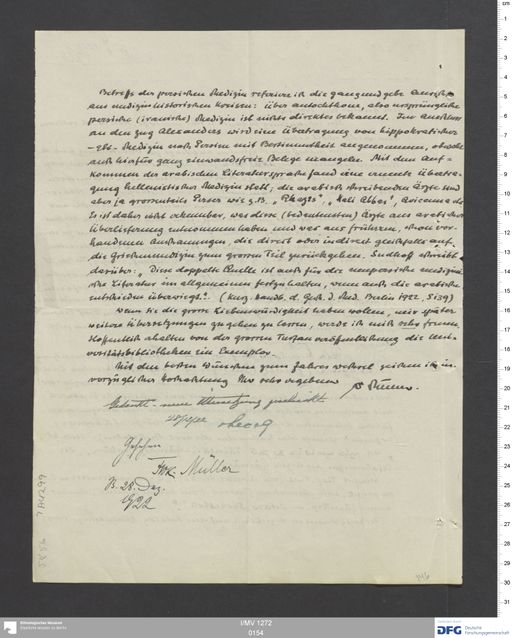 Betreffs der persischen Medizin referiere ich die gang und gebe Ansicht
aus medizinhistorischen Kreisen: Über autochthone, also ursprüngliche
persische (iranische) Medizin ist nichts direktes bekannt. Im Anschluss
an den Zug Alexanders wird eine Übertragung von hippokratischer
Medizin nach Persien mit Bestimmtheit angenommen, obwohl
auch hierfür ganz einwandfreie Belege mangeln. Mit dem Auf-
kommen der arabischen Literatursprache fand eine erneute Übertra-
gung hellenistischer Medizin statt; die arabisch schreibenden Ärzte sind
aber ja grossenteils Perser wie z.B. „Rhazes", „Hali Abbas", Avicenna etc.
Es ist daher nicht erkennbar, was diese (bedeutendsten) Ärzte aus arabischer
Überlieferung entnommen haben und was aus früheren, schon vor-
handenen Anschauungen, die direkt oder indirekt gleichfalls auf
die Griechenmedizin zum grossen Teil zurückgehen. Sudhoff schreibt
darüber: „Diese doppelte Quelle ist auch für die neupersische medizini-
sche Literatur im allgemeinen festzuhalten, wenn auch die arabische
entschieden überwiegt." (Kurz. Handb. d. Gesch. d. Med. Berlin 1922, S 159)
Wenn Sie die grosse Liebenswürdigkeit haben wollen, mir später
weitere Übersetzungen zugehen zu lassen, werde ich mich sehr freuen.
Hoffentlich erhalten von der grossen Turfan Veröffentlichung die Uni-
versitätsbibliotheken ein Exemplar.
Mit den besten Wünschen zum Jahreswechsel zeichne ich in
vorzüglicher Hochachtung Ihr sehr ergebener
Gedankt - neue Übersetzung geschickt.
28/12/22
Gesehen
FWK. Müller
B. 28. Dez.
1922
I/MV 1272
0154
Ethnologisches Museum
Staatliche Museen zu Berlin
DFG Deutsche
Forschungsgemeinschaft